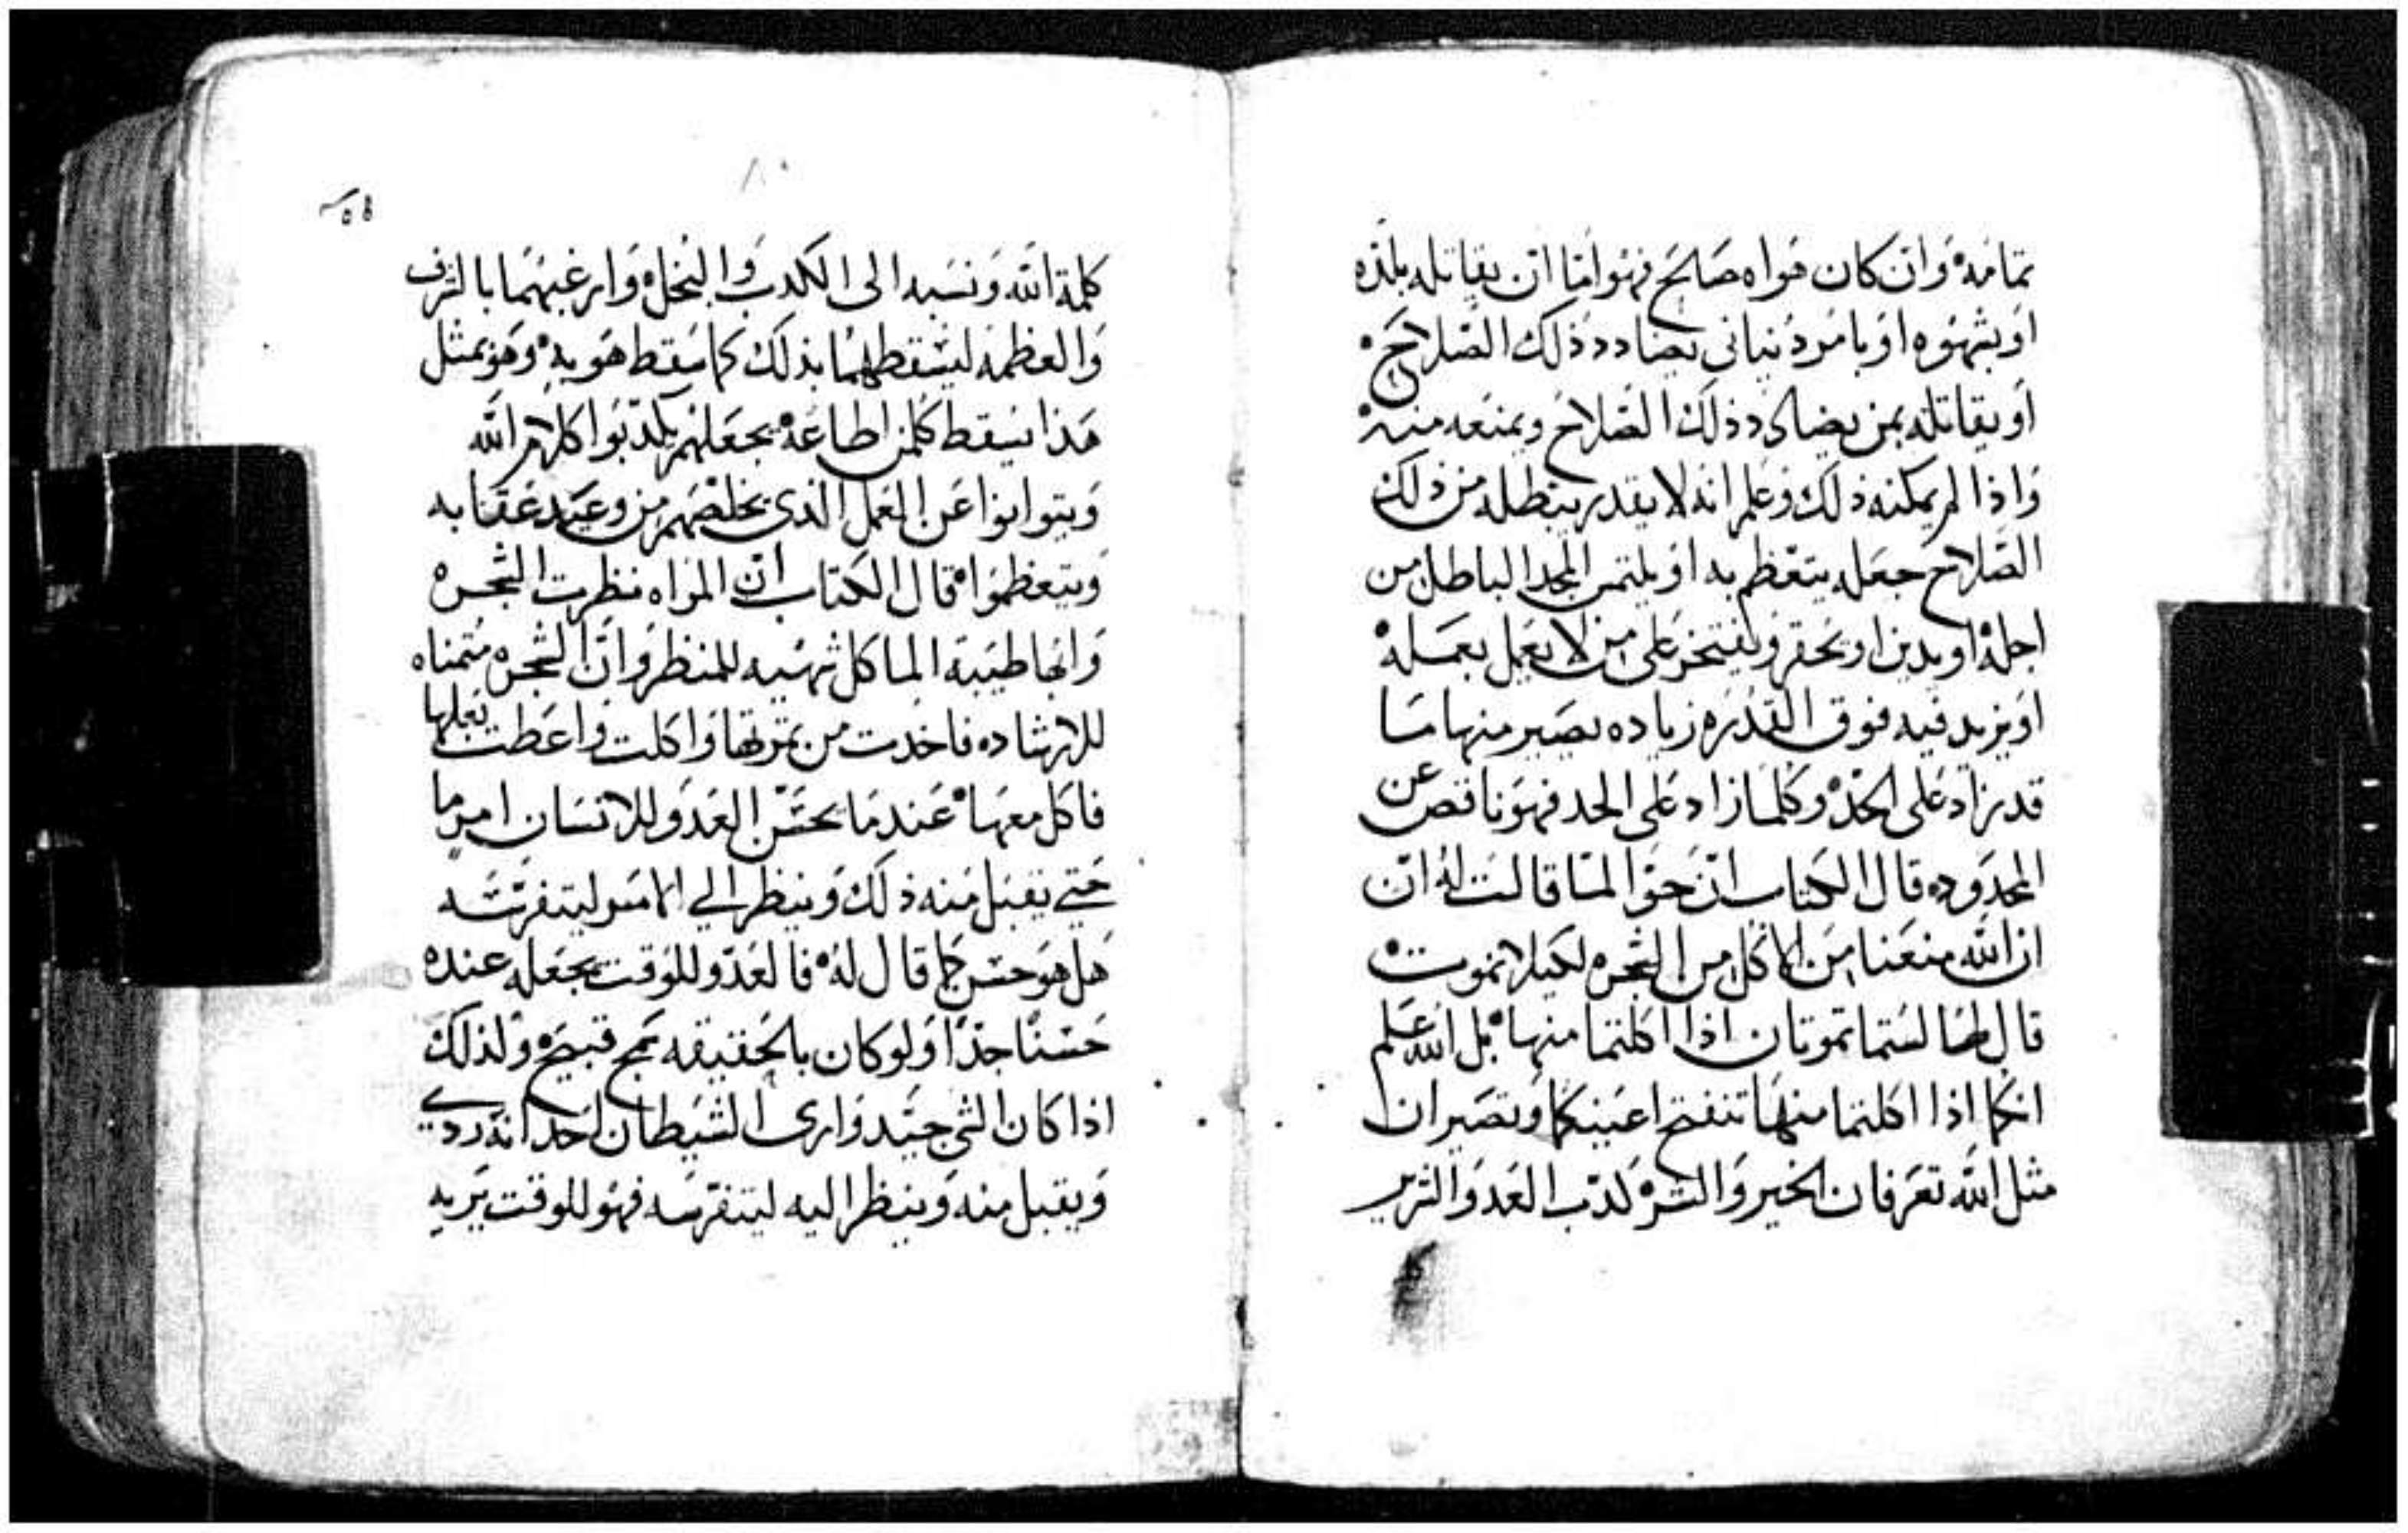 تمامه وان كان هواه صالح فهو اما ان يقاتله بلذه
او بشهوه او بامر دنياني يضادد ذلك الصلاح
او يقاتله بمن يضادد ذلك الصلاح ويمنعه منه
واذا لم يمكنه ذلك وعلم انه لا يقدر يبطله من ذلك
الصلاح جعله يتعظم به او يلتمس المجد الباطل من
اجله او يدين او يحقر ويفتخر على من لا يعمل بعمله
او يزيد فيه فوق القدره زياده يصير منها ما
قد زاد على الحد وكلما زاد على الحد فهو ناقص عن
المحدوده قال الكتاب ان حوا لما قالت له ان
ان الله منعنا من الاكل من الشجره لكيلا نموت
قال لها لستما تموتان اذا اكلتما منها بل الله علم
انكما اذا اكلتما منها تنفتح اعينكما وتصيران
مثل الله تعرفان الخير والشر كدب العدو الشرير
٨٠
كلمة الله ونسبه الى الكدب والبخل وارغبهما بالشرف
والعظمه ليسقطهما بذلك كما سقط هو به وهو بمثل
هذا يسقط كلمن اطاعه يجعلهم يكدبوا كلام الله
ويتوانوا عن العمل الذي يخلصهم من وعيد عقابه
ويتعظموا قال الكتاب ان المراه نظرت الشجره
وانها طيبة الماكل شهيه للمنظر وان الشجره متمناه
للارشاده فاخدت من ثمرتها واكلت واعطت بعلها
فاكل معها عندما يحسن العدو للانسان امر ما
حتي يقبل منه ذلك وينظر الي الامر ليتفرسه
هل هو حسن كما قال له فالعدو للوقت يجعله عنده
حسنا جدا ولو كان بالحقيقه سمج قبيح ولذلك
اذا كان الشي جيد واري الشيطان لاحد انه ردي
ويقبل منه وينظر اليه ليتفرسه فهو للوقت يريه